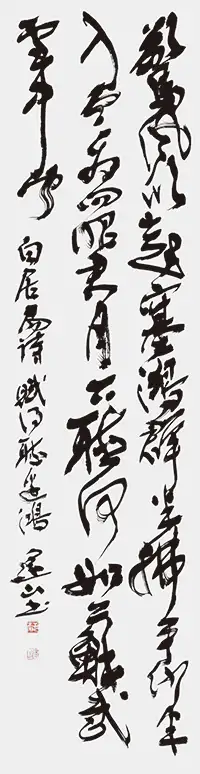 驚風吹起塞鴻群半拂平沙半
入雲為問昭君月下聽何如蘇武
雪中聞
白居易詩賦得聽邊鴻 山书